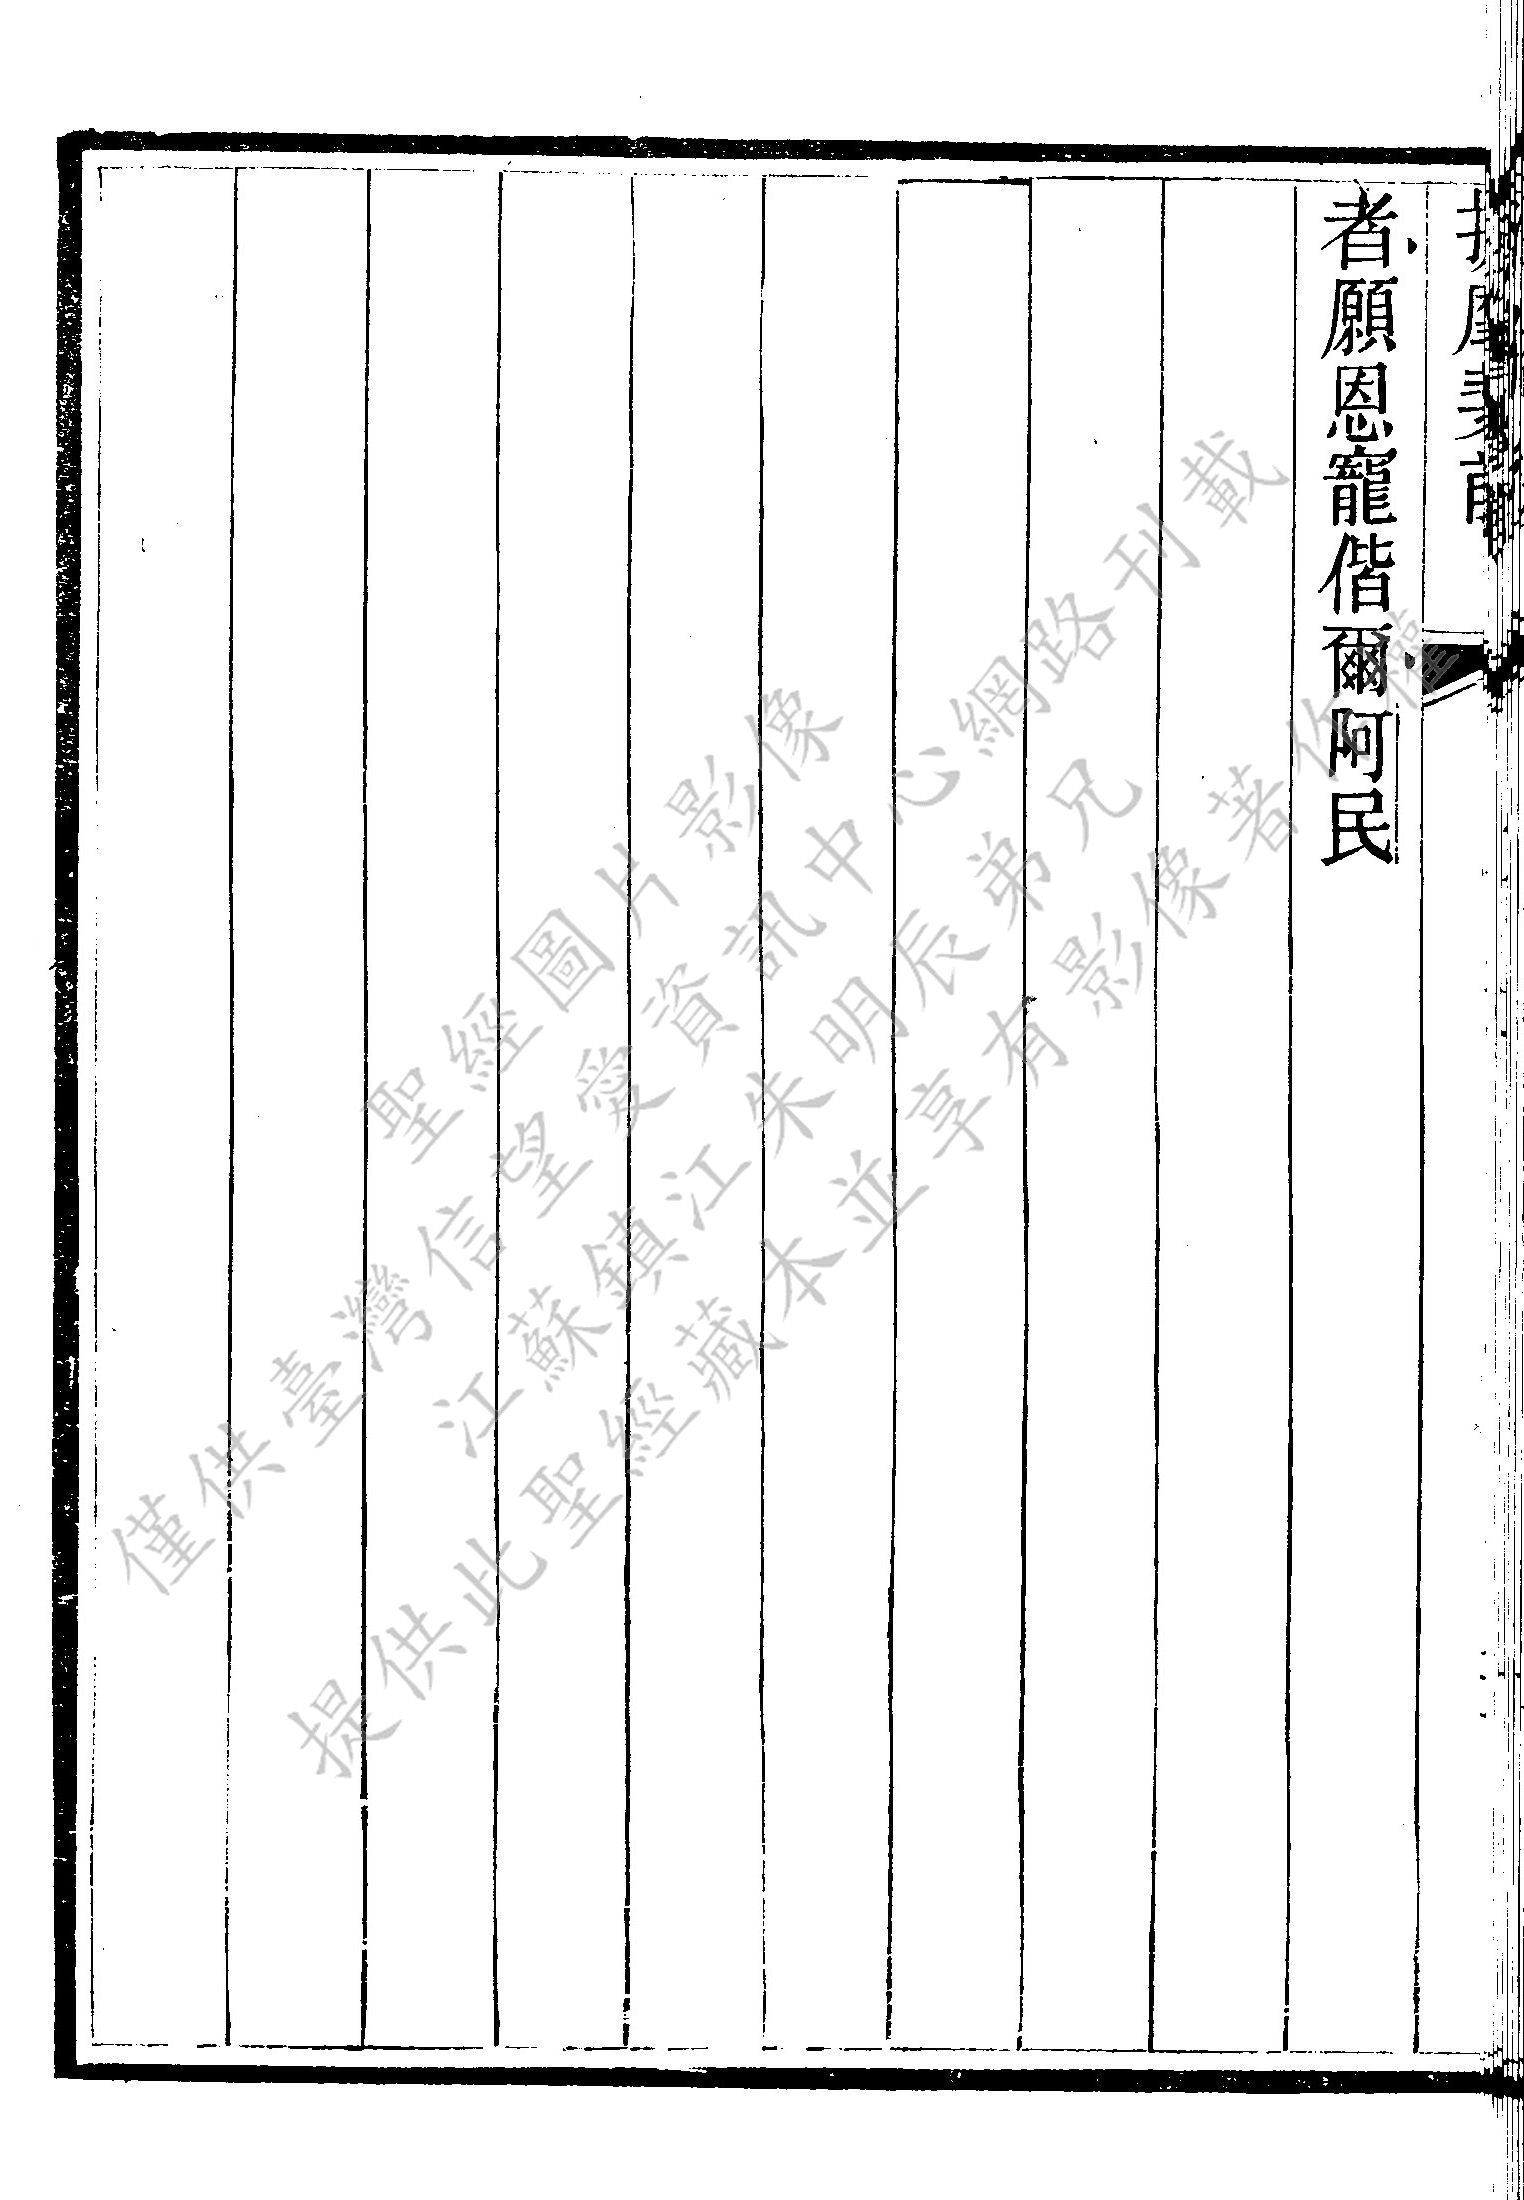 者願恩寵偕爾阿民
聖經圖片影像
僅供臺灣信望愛資訊中心網路刊載
江蘇鎮江朱明辰弟兄
提供此聖經藏本並享有影像著作權